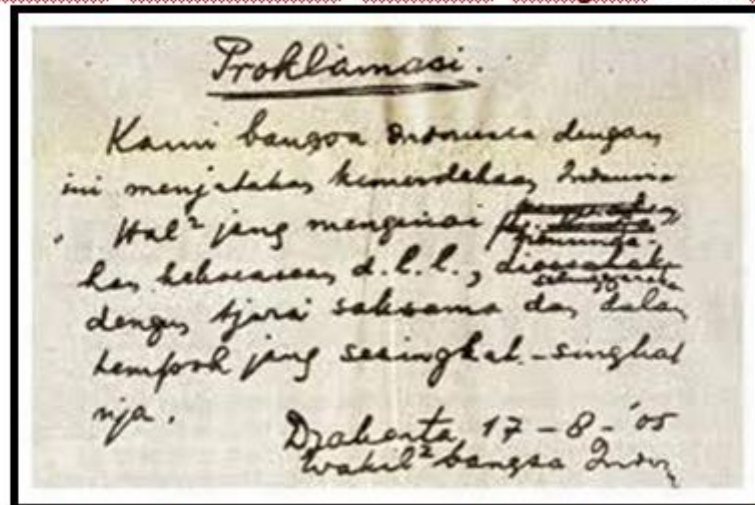 Proklamasi.
Kami bangsa Indonesia dengan
ini menjatakan kemerdekaan Indonesia
Hal² jang mengenai
kan kekoeasaan d.l.l.,
diselenggarakan
dengan tjara saksama dan dalam
tempoh jang sesingkat-singkat
nja.
Djakarta, 17-8-'05
Wakil² bangsa Indon